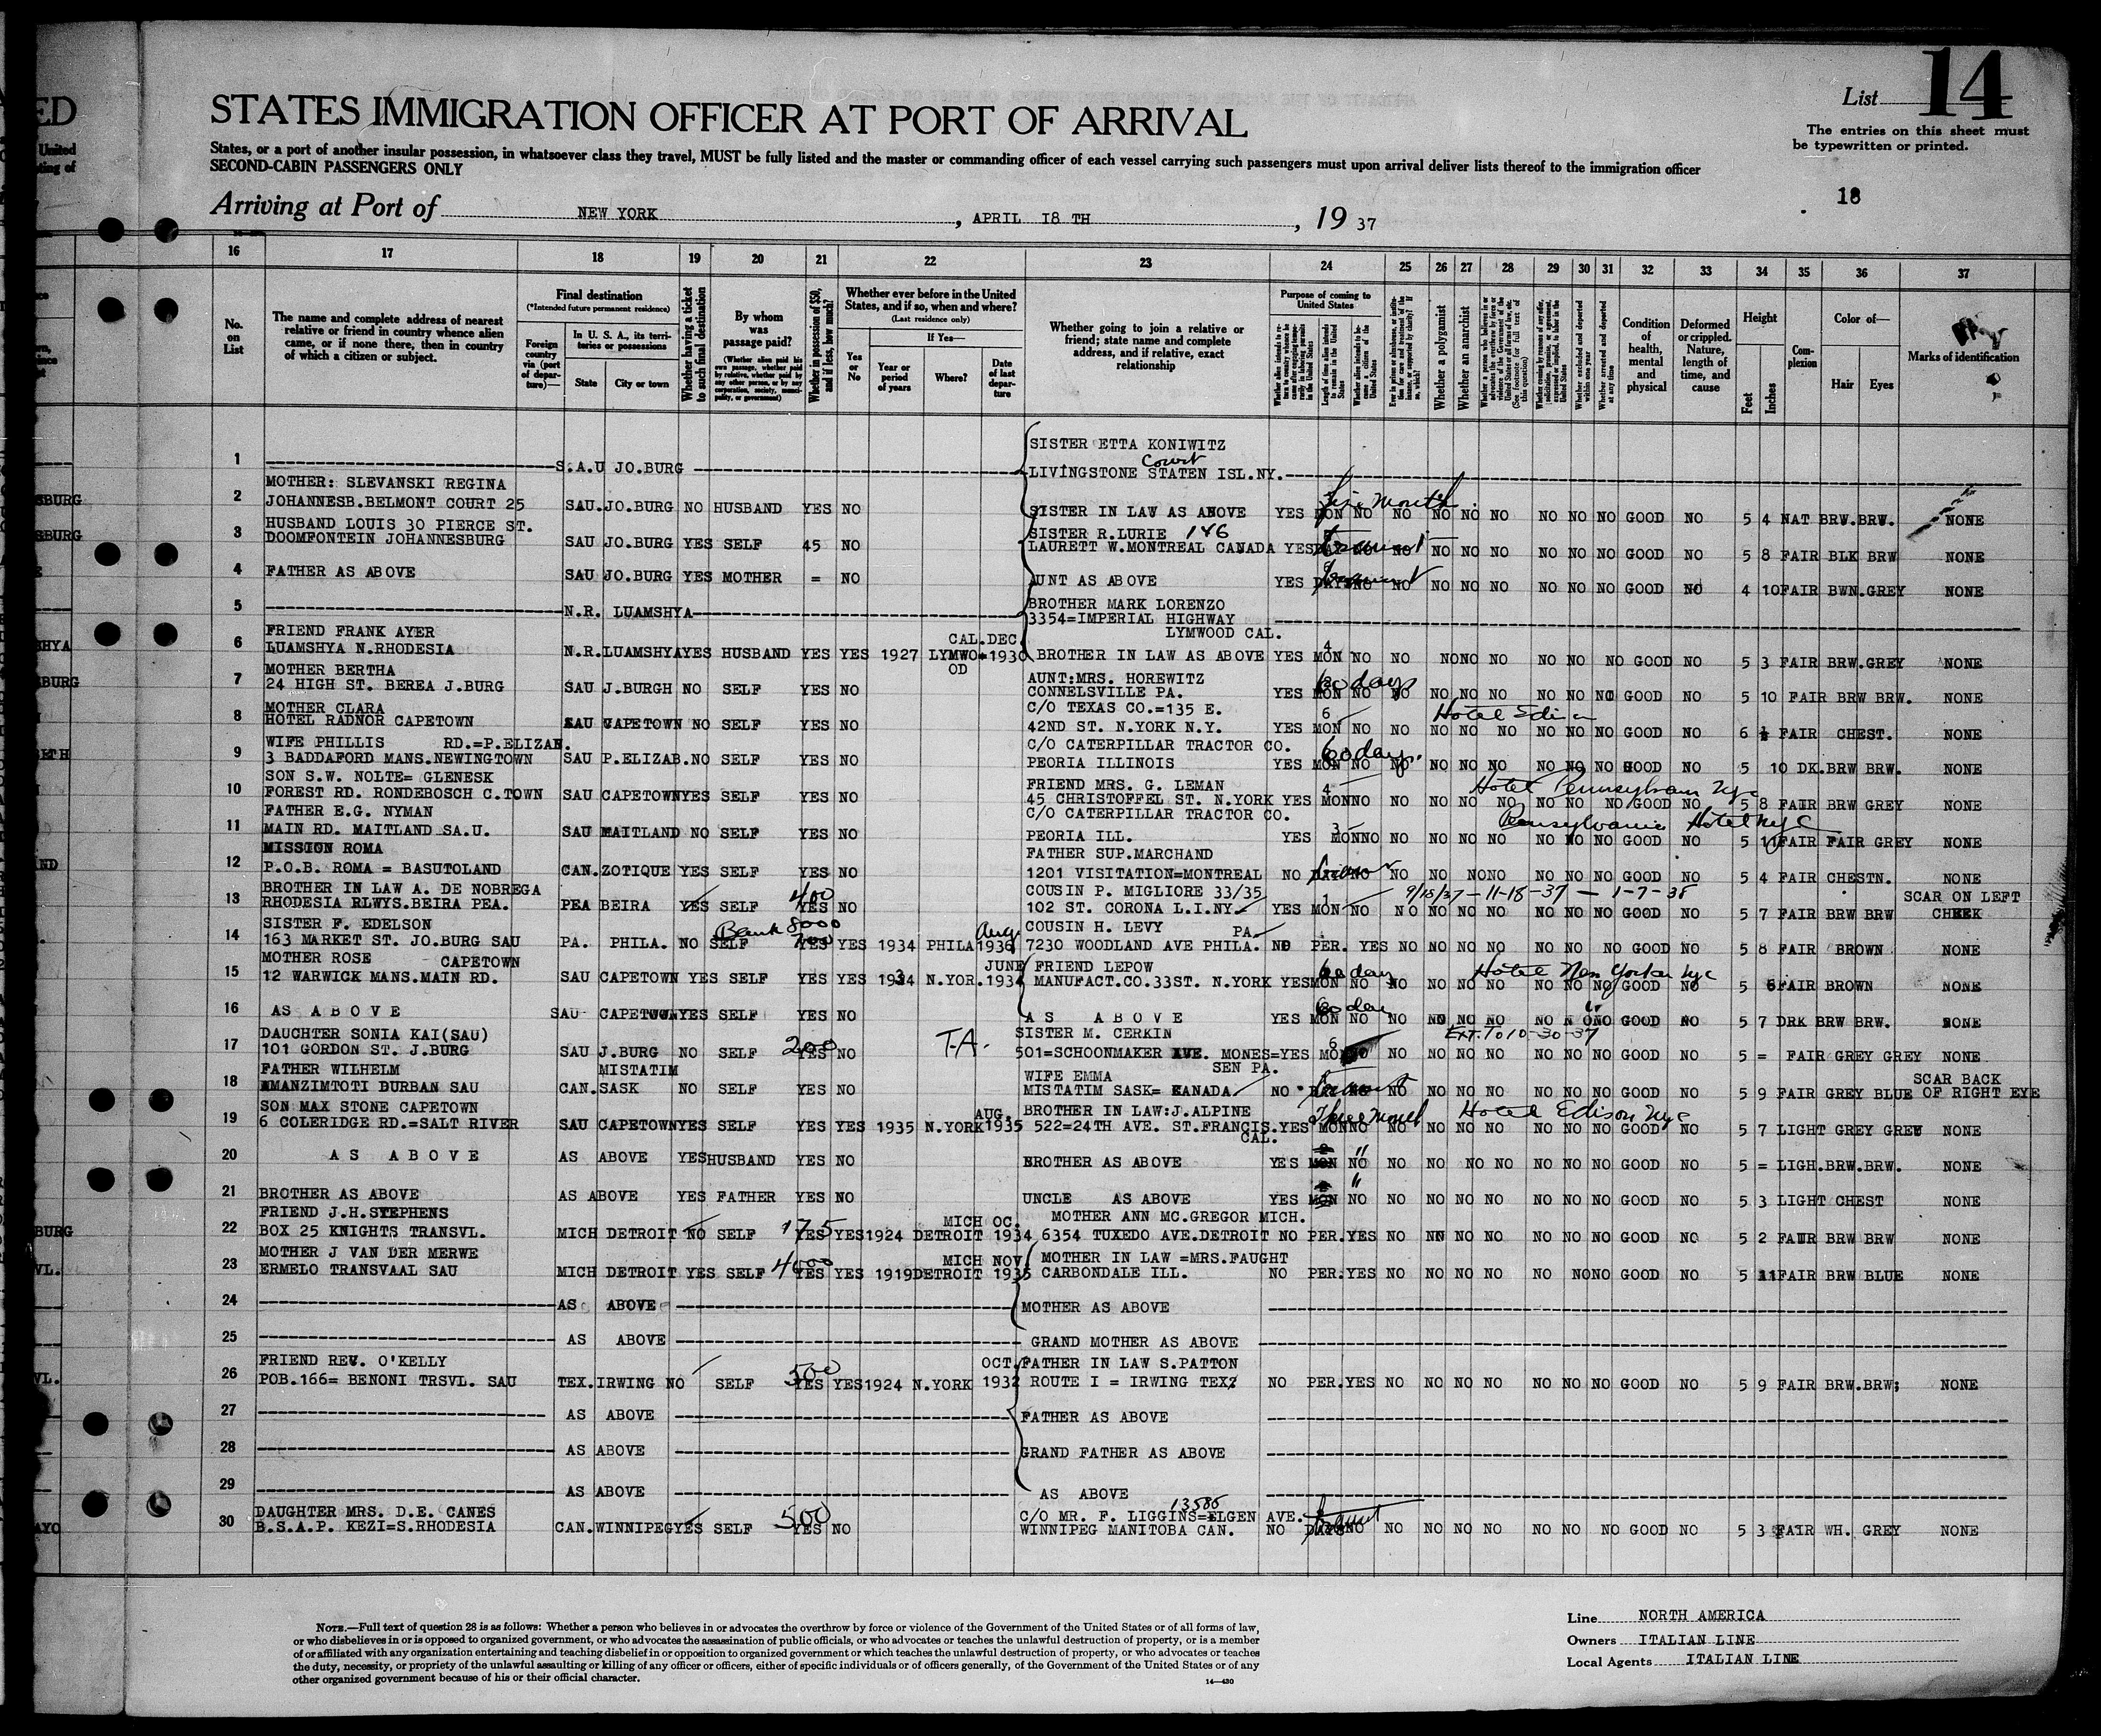 ED
United
ting of
STATES IMMIGRATION OFFICER AT PORT OF ARRIVAL
List 14
The entries on this sheet must
be typewritten or printed.
States, or a port of another insular possession, in whatsoever class they travel, MUST be fully listed and the master or commanding officer of each vessel carrying such passengers must upon arrival deliver lists thereof to the immigration officer
SECOND-CABIN PASSENGERS ONLY
18
Arriving at Port of NEW YORK, APRIL 18 TH, 19 37
16 17 18 19 20 21 22 23 24 25 26 27 28 29 30 31 32 33 34 35 36 37
No. on List
The name and complete address of nearest relative or friend in country whence alien came, or if none there, then in country of which a citizen or subject.
Final destination
(*Intended future permanent residence)
Foreign country via (port of departure)—
In U. S. A., its territories or possessions
State
City or town
Whether having a ticket to such final destination
By whom was passage paid?
(Whether alien paid his own passage, whether paid by relative, whether paid by any other person, or by any corporation, society, municipality, or government)
Whether in possession of $50, and if less, how much?
Whether ever before in the United States, and if so, when and where?
(Last residence only)
Yes or No
If Yes—
Year or period of years
Where?
Date of last departure
Whether going to join a relative or friend; state name and complete address, and if relative, exact relationship
Purpose of coming to United States
Length of time alien intends to remain in the United States
Whether alien intends to become a citizen of the United States
Whether a polygamist
Whether an anarchist
Condition of health, mental and physical
Deformed or crippled. Nature, length of time, and cause
Height
Feet
Inches
Complexion
Color of—
Hair
Eyes
Marks of identification
SISTER ETTA KONIWITZ
Court
1 S.A.U JO.BURG LIVINGSTONE STATEN ISL.NY.
MOTHER: SLEVANSKI REGINA
2 JOHANNESB.BELMONT COURT 25 SAU. JO.BURG NO HUSBAND YES NO SISTER IN LAW AS ABOVE YES MON NO NO NO NO NO NO NO NO GOOD NO 5 4 NAT BRW.BRW. NONE
Six Month
HUSBAND LOUIS 30 PIERCE ST. SISTER R.LURIE 146
3 DOOMFONTEIN JOHANNESBURG SAU JO.BURG YES SELF 45 NO LAURETT W.MONTREAL CANADA YES NO NO NO NO NO NO NO GOOD NO 5 8 FAIR BLK BRW NONE
4 FATHER AS ABOVE SAU JO.BURG YES MOTHER = NO AUNT AS ABOVE YES DAYS NO NO NO NO NO NO NO NO GOOD NO 4 10 FAIR BWN.GREY NONE
BROTHER MARK LORENZO
5 N.R. LUAMSHYA 3354=IMPERIAL HIGHWAY
LYMWOOD CAL.
FRIEND FRANK AYER CAL. DEC
6 LUAMSHYA N.RHODESIA N.R. LUAMSHYA YES HUSBAND YES YES 1927 LYMWO 1930 BROTHER IN LAW AS ABOVE YES 4 MON NO NO NONO NO NO NO NO GOOD NO 5 3 FAIR BRW.GREY NONE
OD
MOTHER BERTHA AUNT:MRS. HOREWITZ
7 24 HIGH ST. BEREA J.BURG SAU J.BURGH NO SELF YES NO CONNELSVILLE PA. YES MON NO NO NO NO NO NO NO NO GOOD NO 5 10 FAIR BRW BRW. NONE
60 days
MOTHER CLARA C/O TEXAS CO.=135 E.
8 HOTEL RADNOR CAPETOWN SAU CAPETOWN NO SELF YES NO 42ND ST. N.YORK N.Y. YES 6 MON NO NO NO NO NO NO NO NO GOOD NO 6 ½ FAIR CHEST. NONE
WIFE PHILLIS RD.=P.ELIZAB. C/O CATERPILLAR TRACTOR CO.
9 3 BADDAFORD MANS.NEWINGTOWN SAU P.ELIZAB. NO SELF YES NO PEORIA ILLINOIS YES MON NO NO NO NO NO NO NO NO GOOD NO 5 10 DK.BRW BRW. NONE
60 days.
SON S.W. NOLTE= GLENESK FRIEND MRS. G. LEMAN
10 FOREST RD. RONDEBOSCH C.TOWN SAU CAPETOWN YES SELF YES NO 45 CHRISTOFFEL ST. N.YORK YES 4 MON NO NO NO NO NO NO NO NO GOOD NO 5 8 FAIR BRW GREY NONE
Hotel Pennsylvania Nyc
FATHER E.G. NYMAN C/O CATERPILLAR TRACTOR CO.
11 MAIN RD. MAITLAND SA.U. SAU MAITLAND NO SELF YES NO PEORIA ILL. YES 3 MON NO NO NO NO NO NO NO NO GOOD NO 5 FAIR FAIR GREY NONE
Pennsylvania Hotel Nyc
MISSION ROMA FATHER SUP.MARCHAND
12 P.O.B. ROMA = BASUTOLAND CAN. ZOTIQUE YES SELF YES NO 1201 VISITATION=MONTREAL NO NO NO NONO NO NO NO NO GOOD NO 5 4 FAIR CHESTN. NONE
BROTHER IN LAW A. DE NOBREGA COUSIN P. MIGLIORE 33/35 9/18/37 – 11-18-37 – 1-7-38 SCAR ON LEFT
13 RHODESIA RLWYS.BEIRA PEA. PEA BEIRA YES SELF 400 YES NO 102 ST. CORONA L.I.NY. YES 1 MON NO NO NO NO NO NO NO NO GOOD NO 5 7 FAIR BRW BRW CHEEK
SISTER F. EDELSON Bank 8000 Aug COUSIN H. LEVY PA.
14 163 MARKET ST. JO.BURG SAU PA. PHILA. NO SELF YES YES 1934 PHILA 1936 7230 WOODLAND AVE PHILA. NO PER. YES NO NO NO NO NO NO NO GOOD NO 5 8 FAIR BROWN NONE
MOTHER ROSE CAPETOWN JUNE FRIEND LEPOW
15 12 WARWICK MANS.MAIN RD. SAU CAPETOWN YES SELF YES YES 1934 N.YOR. 1934 MANUFACT.CO.33ST. N.YORK YES MON NO NO NO NO NO NO NO NO GOOD NO 5 FAIR BROWN NONE
60 days Hotel New Yorker Nyc
16 AS ABOVE SAU CAPETOWN YES SELF YES NO AS ABOVE YES MON NO NO NO NO NO NO NO NO GOOD NO 5 7 DRK BRW BRW. NONE
60 days
DAUGHTER SONIA KAI(SAU) SISTER M. CERKIN EXT. TO 10-30-37
17 101 GORDON ST. J.BURG SAU J.BURG NO SELF 200 YES NO T-A. 501=SCHOONMAKER AVE. MONES= YES 6 NO NO NO NO NO NO NO NO GOOD NO 5 = FAIR GREY GREY NONE
SEN PA.
FATHER WILHELM MISTATIM WIFE EMMA SCAR BACK
18 AMANZIMTOTI DURBAN SAU CAN. SASK NO SELF YES NO MISTATIM SASK= KANADA NO NO NO NO NO NO NO NO NO GOOD NO 5 9 FAIR GREY BLUE OF RIGHT EYE
SON MAX STONE CAPETOWN AUG. BROTHER IN LAW:J.ALPINE Three Month Hotel Edison Nyc
19 6 COLERIDGE RD.=SALT RIVER SAU CAPETOWN YES SELF YES YES 1935 N.YORK 1935 522=24TH AVE. ST.FRANCIS. YES MON NO NO NO NO NO NO NO NO GOOD NO 5 7 LIGHT GREY GREY NONE
CAL.
20 AS ABOVE AS ABOVE YES HUSBAND YES NO BROTHER AS ABOVE YES MON NO NO NO NO NO NO NO NO GOOD NO 5 = LIGH.BRW.BRW. NONE
21 BROTHER AS ABOVE AS ABOVE YES FATHER YES NO UNCLE AS ABOVE YES MON NO NO NO NO NO NO NO NO GOOD NO 5 3 LIGHT CHEST NONE
FRIEND J.H.STEPHENS MICH OC. MOTHER ANN MC.GREGOR MICH.
22 BOX 25 KNIGHTS TRANSVL. MICH DETROIT NO SELF 175 YES YES 1924 DETROIT 1934 6354 TUXEDO AVE.DETROIT NO PER. YES NO NO NO NO NO NO NO GOOD NO 5 2 FAIR BRW BRW NONE
MOTHER J VAN DER MERWE MICH NOV MOTHER IN LAW =MRS.FAUGHT
23 ERMELO TRANSVAAL SAU MICH DETROIT YES SELF 4000 YES YES 1919 DETROIT 1935 CARBONDALE ILL. NO PER. YES NO NO NO NO NO NONO GOOD NO 5 11 FAIR BRW BLUE NONE
24 AS ABOVE MOTHER AS ABOVE
25 AS ABOVE GRAND MOTHER AS ABOVE
FRIEND REV. O'KELLY OCT. FATHER IN LAW S.PATTON
26 POB.166= BENONI TRSVL. SAU TEX. IRWING NO SELF 500 YES YES 1924 N.YORK 1932 ROUTE I = IRWING TEX NO PER. YES NO NO NO NO NO NO NO GOOD NO 5 9 FAIR BRW.BRW; NONE
27 AS ABOVE FATHER AS ABOVE
28 AS ABOVE GRAND FATHER AS ABOVE
29 AS ABOVE AS ABOVE
DAUGHTER MRS. D.E. CANES C/O MR. F. LIGGINS=ELGEN AVE.
30 B.S.A.P. KEZI=S.RHODESIA CAN. WINNIPEG YES SELF 500 YES NO WINNIPEG MANITOBA CAN. NO NO NO NO NO NO NO NO NO GOOD NO 5 3 FAIR WH. GREY NONE
NOTE.—Full text of question 28 is as follows: Whether a person who believes in or advocates the overthrow by force or violence of the Government of the United States or of all forms of law,
or who disbelieves in or is opposed to organized government, or who advocates the assassination of public officials, or who advocates or teaches the unlawful destruction of property, or is a member
of or affiliated with any organization entertaining and teaching disbelief in or opposition to organized government or which teaches the unlawful destruction of property, or who advocates or teaches
the duty, necessity, or propriety of the unlawful assaulting or killing of any officer or officers, either of specific individuals or of officers generally, of the Government of the United States or of any
other organized government because of his or their official character.
14—430
Line NORTH AMERICA
Owners ITALIAN LINE
Local Agents ITALIAN LINE